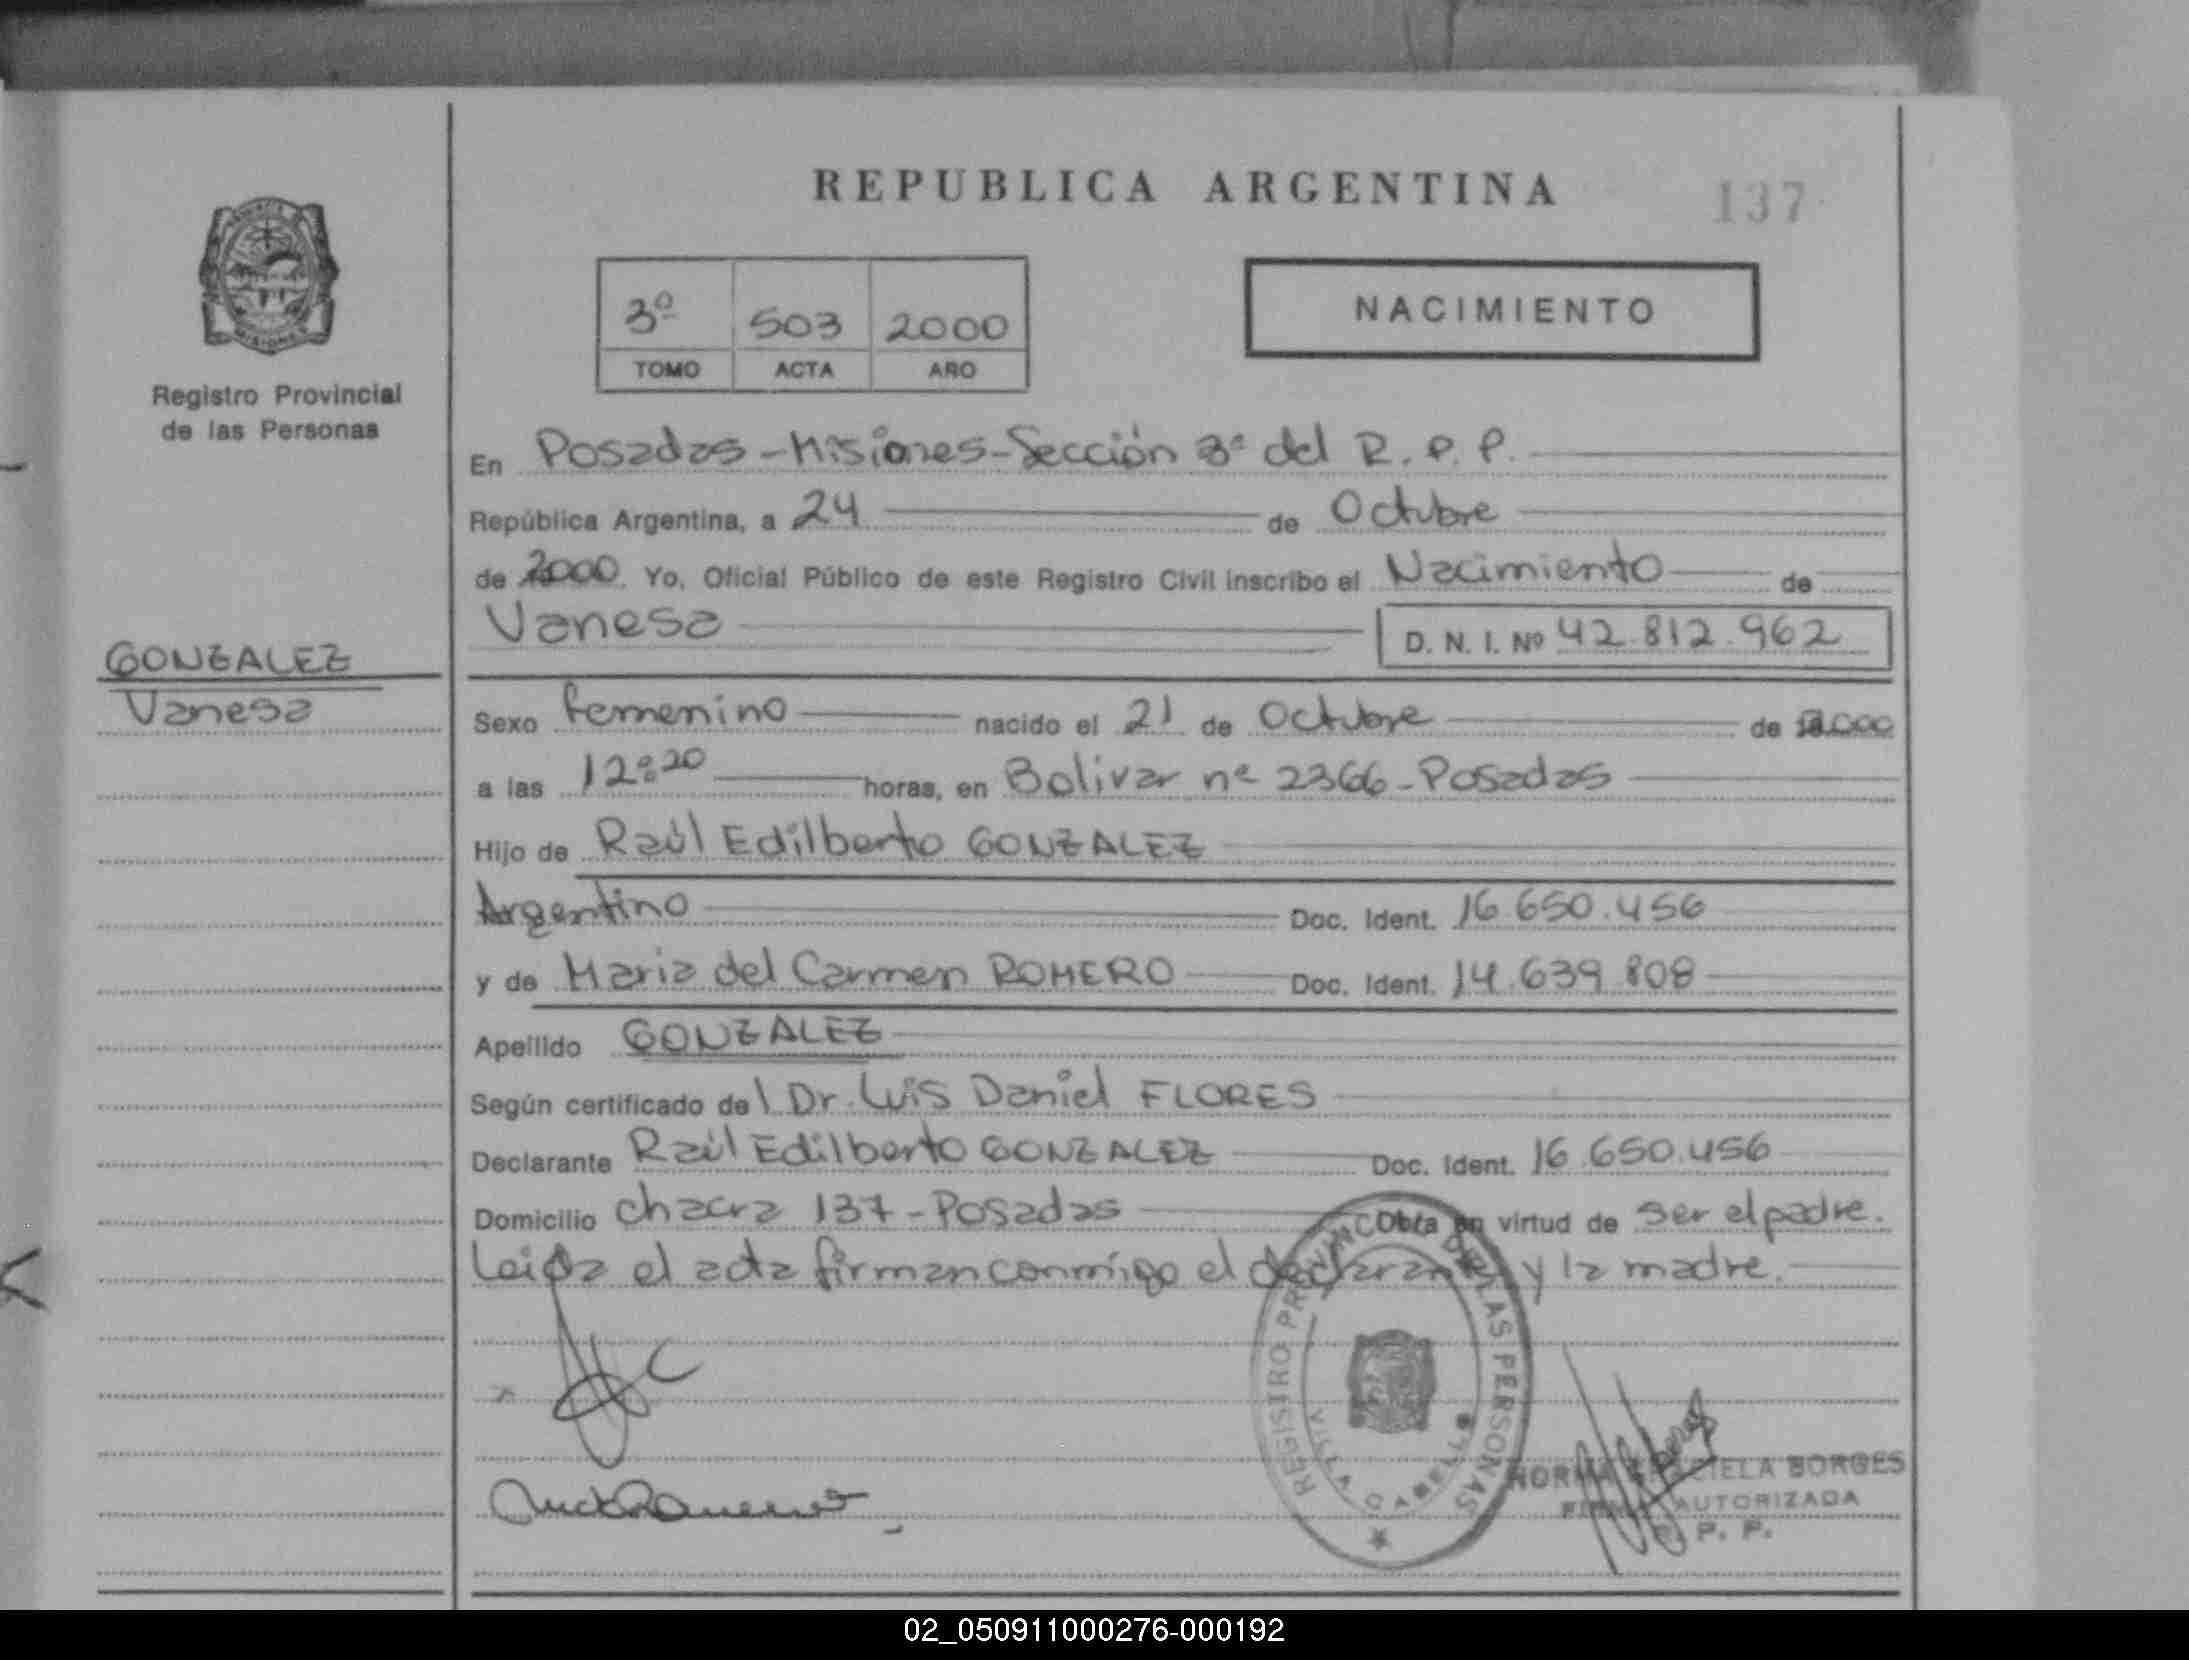 REPUBLICA ARGENTINA
137
3º 503 2000
TOMO ACTA AÑO
NACIMIENTO
Registro Provincial
de las Personas
En Posadas - Misiones - Sección 3ª del R. P. P.
República Argentina, a 24 de Octubre
de 2000. Yo, Oficial Público de este Registro Civil inscribo el Nacimiento de
Vanesa D. N. I. Nº 42.812.962
GONZALEZ
Vanesa
Sexo femenino nacido el 21 de Octubre de 2000
a las 12:20 horas, en Bolivar nº 2366 - Posadas
Hijo de Raúl Edilberto GONZALEZ
Argentino Doc. Ident. 16.650.456
y de Maria del Carmen ROMERO Doc. Ident. 14.639.808
Apellido GONZALEZ
Según certificado del Dr. Luis Daniel FLORES
Declarante Raúl Edilberto GONZALEZ Doc. Ident. 16.650.456
Domicilio chacra 137 - Posadas Obra en virtud de ser el padre.
Leida el acta firman conmigo el declarante y la madre.
REGISTRO PROVINCIAL DE LAS PERSONAS
VILLA CABELLO
NORMA GRACIELA BORGES
FIRMA AUTORIZADA
R. P. P.
02_050911000276-000192